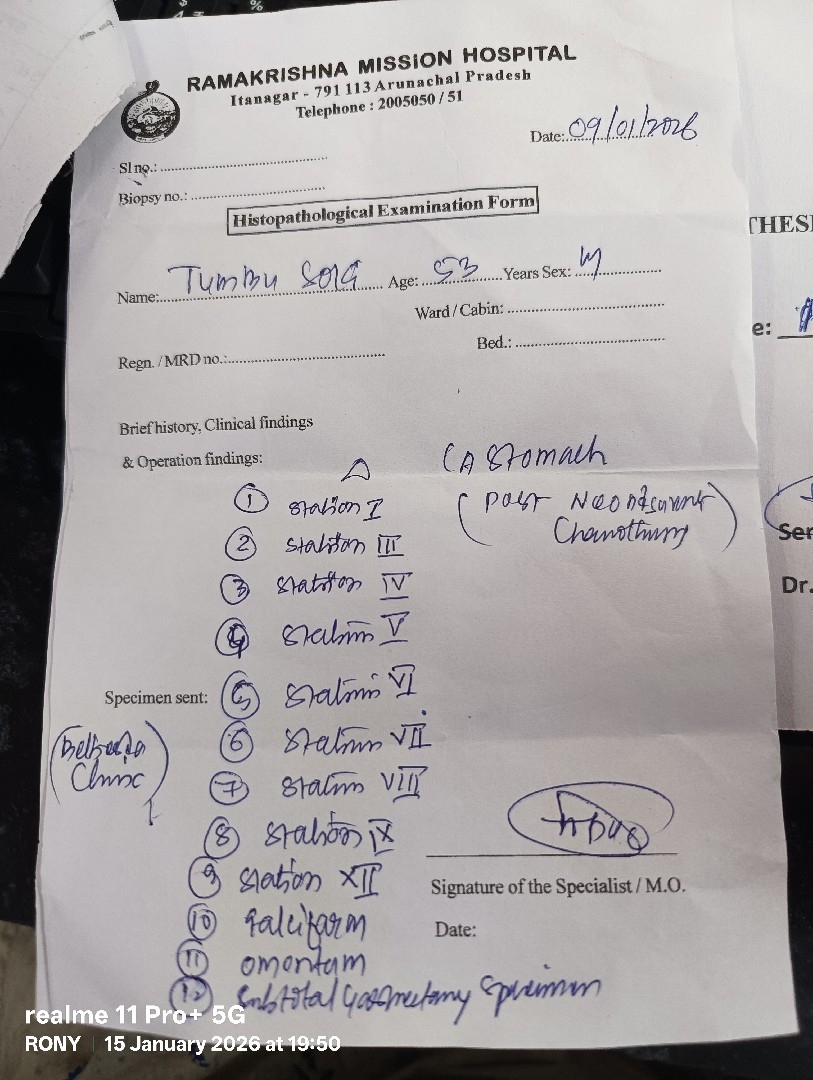 RAMAKRISHNA MISSION HOSPITAL
Itanagar - 791 113 Arunachal Pradesh
Telephone : 2005050 / 51
Date: 09/01/2026
Sl no.:
Biopsy no.:
Histopathological Examination Form
Name: Tumbu Sora Age: 53 Years Sex: M
Ward / Cabin:
Regn. / MRD no.: Bed.:
Brief history, Clinical findings
& Operation findings: CA Stomach
(Post
① Station I
② Station III
③ Station IV
④ Station V
Specimen sent: ⑤ Station VI
⑥ Station VII
Clinic)
⑦ Station VIII
⑧ Station IX
⑨ Station XII
Signature of the Specialist / M.O.
⑩ Falcifarm
Date:
⑪ Omentum
⑫ Subtotal Gastrectomy Specimen
THES
e:
Ser
Dr.
realme 11 Pro+ 5G
RONY | 15 January 2026 at 19:50